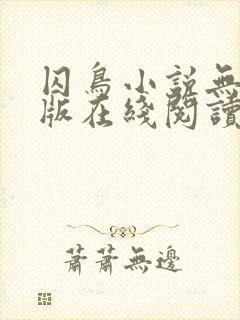 囚鳥小説無
版在綫閱讀
蕭蕭無邊